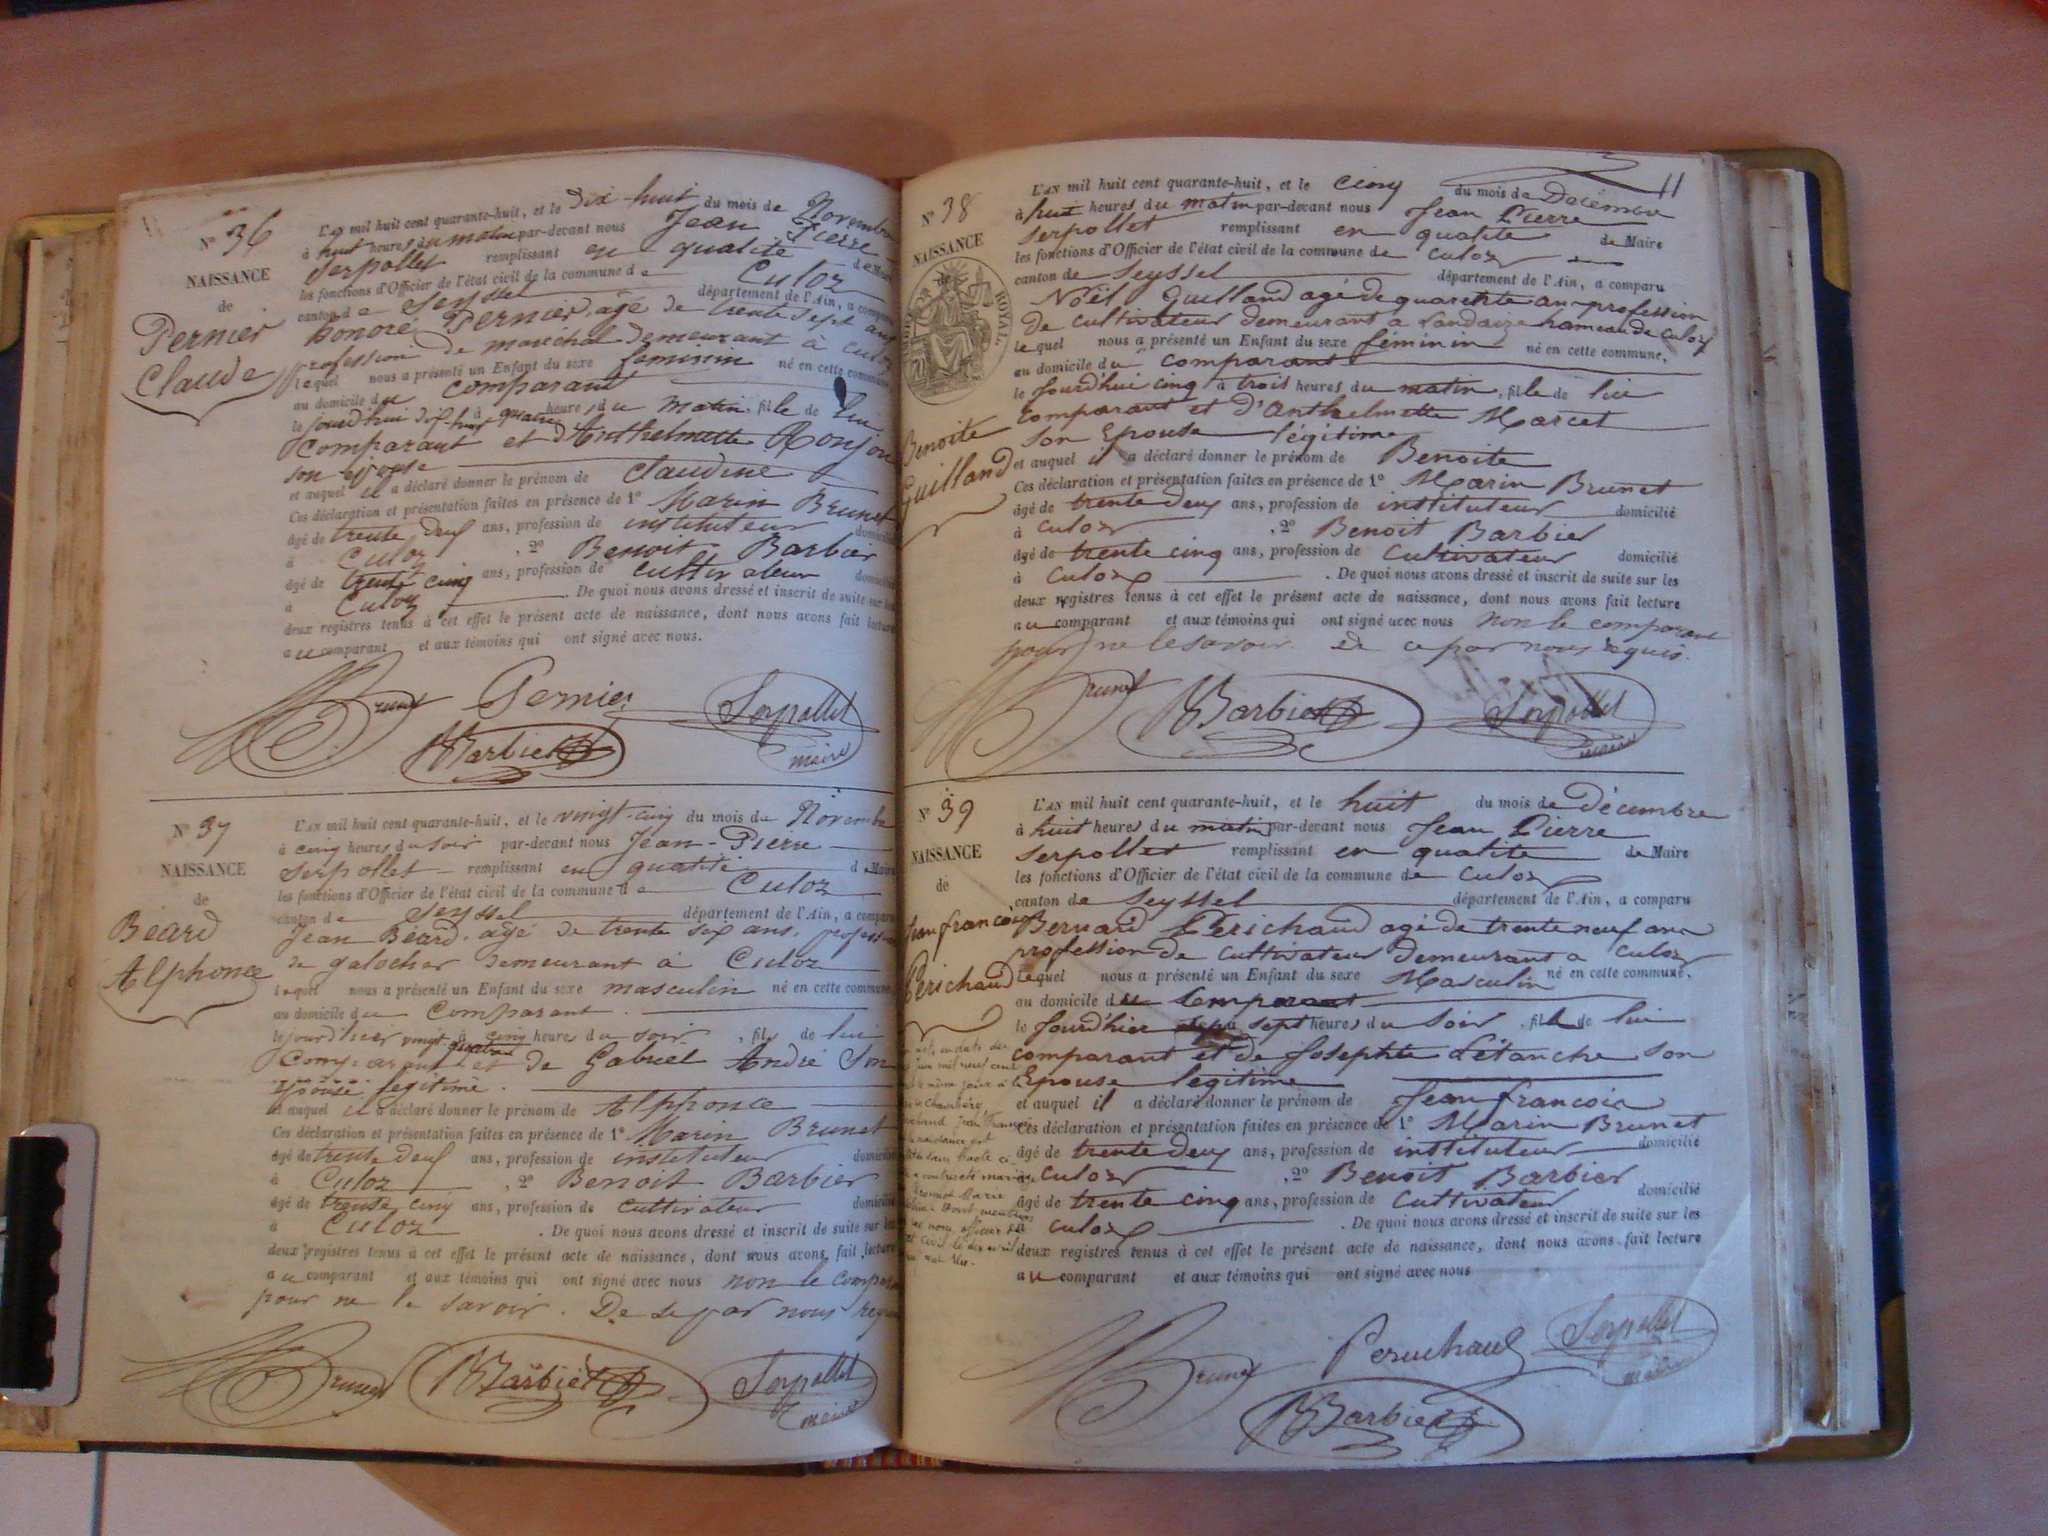 N° 36
NAISSANCE
de
Pernier
Claude
L'AN mil huit cent quarante-huit, et le Dix huit du mois de Novembre
à huit heures du matin par-devant nous Jean Pierre
Serpollet remplissant en qualité de Maire
les fonctions d'Officier de l'état civil de la commune de Culoz
canton de Seyssel département de l'Ain, a comparu
honoré Pernier, agé de trente sept ans
profession de maréchal demeurant à Culoz
lequel nous a présenté un Enfant du sexe féminin né en cette commune
au domicile du comparant
le jourd'hui dix huit à quatre heures du matin, fille de lui
comparant et d'Anthelmette
son épouse
et auquel il a déclaré donner le prénom de Claudine
Ces déclaration et présentation faites en présence de 1° Marin Brunet
âgé de trente deux ans, profession de instituteur domicilié
à Culoz , 2° Benoit Barbier
âgé de trente cinq ans, profession de cultivateur domicilié
à Culoz . De quoi nous avons dressé et inscrit de suite sur les
deux registres tenus à cet effet le présent acte de naissance, dont nous avons fait lecture
au comparant et aux témoins qui ont signé avec nous.
Brunet Pernier Serpollet
Barbier maire
N° 37
NAISSANCE
de
Béard
Alphonce
L'AN mil huit cent quarante-huit, et le vingt-cinq du mois de Novembre
à cinq heures du soir par-devant nous Jean-Pierre
Serpollet remplissant en qualité de Maire
les fonctions d'Officier de l'état civil de la commune de Culoz
canton de Seyssel département de l'Ain, a comparu
Jean Béard, agé de trente six ans, profession
de galocher demeurant à Culoz
lequel nous a présenté un Enfant du sexe masculin né en cette commune
au domicile du Comparant
le jourd'hier vingt quatre à cinq heures du soir, fils de lui
Comparant et de Gabriel André Son
épouse légitime.
et auquel il a déclaré donner le prénom de Alphonce
Ces déclaration et présentation faites en présence de 1° Marin Brunet
âgé de trente deux ans, profession de instituteur domicilié
à Culoz , 2° Benoit Barbier
âgé de trente cinq ans, profession de cultivateur domicilié
à Culoz . De quoi nous avons dressé et inscrit de suite sur les
deux registres tenus à cet effet le présent acte de naissance, dont nous avons fait lecture
au comparant et aux témoins qui ont signé avec nous non le comparant
pour ne le savoir. De ce par nous requis
Brunet Barbier Serpollet
maire
11
N° 38
NAISSANCE
de
ROYAL
Benoite
Guilland
L'AN mil huit cent quarante-huit, et le cinq du mois de Décembre
à huit heures du matin par-devant nous Jean Pierre
Serpollet remplissant en qualité de Maire
les fonctions d'Officier de l'état civil de la commune de Culoz
canton de Seyssel département de l'Ain, a comparu
Noël Guilland agé de quarante ans profession
de cultivateur demeurant a hameau de Culoz
lequel nous a présenté un Enfant du sexe féminin né en cette commune,
au domicile du comparant
le jourd'hui cinq à trois heures du matin, fille de lui
comparant et d'Anthelmette Marcet
son Epouse légitime
et auquel il a déclaré donner le prénom de Benoite
Ces déclaration et présentation faites en présence de 1° Marin Brunet
âgé de trente deux ans, profession de instituteur domicilié
à Culoz , 2° Benoit Barbier
âgé de trente cinq ans, profession de Cultivateur domicilié
à Culoz . De quoi nous avons dressé et inscrit de suite sur les
deux registres tenus à cet effet le présent acte de naissance, dont nous avons fait lecture
au comparant et aux témoins qui ont signé avec nous non le comparant
pour ne le savoir. De ce par nous requis.
Brunet Barbier Serpollet
maire
N° 39
NAISSANCE
de
Jean francois
Perichaud
L'AN mil huit cent quarante-huit, et le huit du mois de Décembre
à huit heures du matin par-devant nous Jean Pierre
Serpollet remplissant en qualité de Maire
les fonctions d'Officier de l'état civil de la commune de Culoz
canton de Seyssel département de l'Ain, a comparu
Bernard Perichaud agé de trente neuf ans
profession de cultivateur demeurant a Culoz
lequel nous a présenté un Enfant du sexe Masculin né en cette commune.
au domicile du Comparant
le jourd'hier sept heures du Soir, fils de lui
comparant et de Josephte Létanche son
Epouse légitime
et auquel il a déclaré donner le prénom de Jean francois
Ces déclaration et présentation faites en présence de 1° Marin Brunet
âgé de trente deux ans, profession de instituteur domicilié
à Culoz , 2° Benoit Barbier
âgé de trente cinq ans, profession de Cultivateur domicilié
à Culoz . De quoi nous avons dressé et inscrit de suite sur les
deux registres tenus à cet effet le présent acte de naissance, dont nous avons fait lecture
au comparant et aux témoins qui ont signé avec nous
Brunet Peruchaud Serpollet
Barbier maire